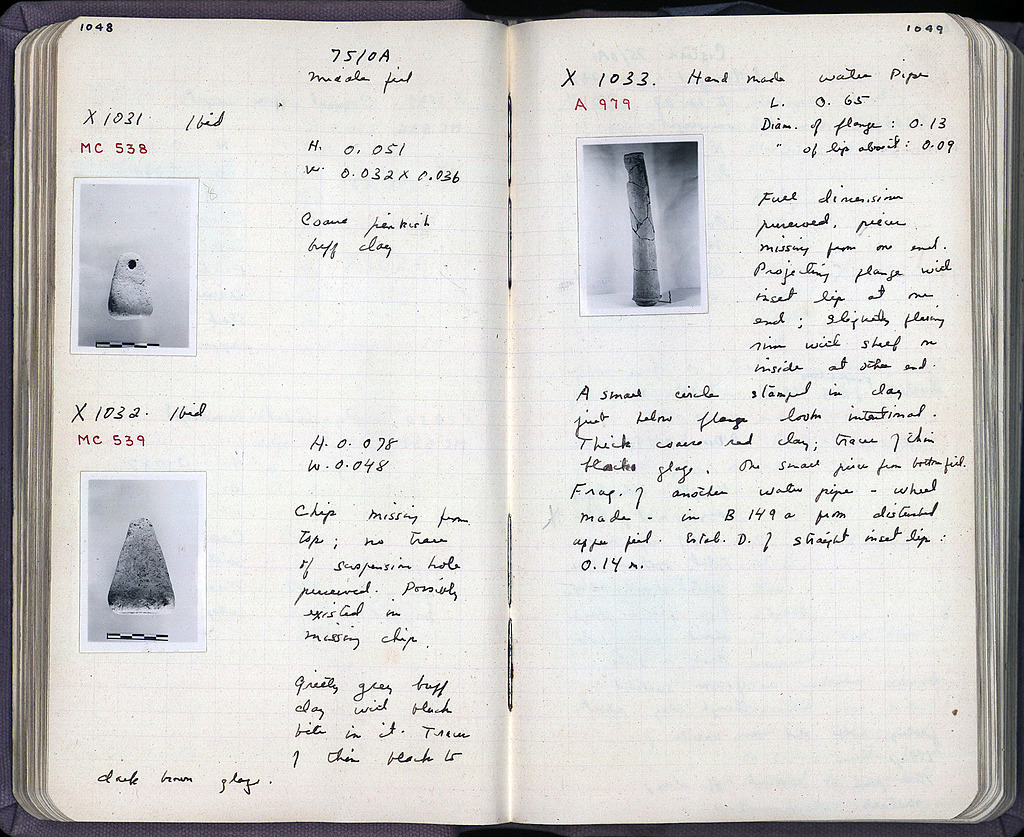 1048
75/0A
Middle fill
X 1031. Ibid
MC 538
H. 0.051
W. 0.032 X 0.036
Coarse pinkish
buff clay
X 1032. Ibid
MC 539
H. 0.078
W. 0.048
Chip missing from
top; no trace
of suspension hole
preserved. Possibly
existed in
missing chip.
Gritty grey buff
clay with black
bits in it. Traces
of thin black to
dark brown glaze.
1049
X 1033. Hand made water Pipe
A 979
L. 0.65
Diam. of flange: 0.13
" of lip about: 0.09
Full dimension
preserved, pieces
missing from one end.
Projecting flange with
inset lip at one
end; slightly flaring
rim with shelf on
inside at other end.
A small circle stamped in clay
just below flange looks intentional.
Thick coarse red clay; traces of thin
black glaze. One small piece from bottom fill.
Frag. of another water pipe - wheel
made - in B 149 a from disturbed
upper fill. Estab. D. of straight inset lip:
0.14 m.